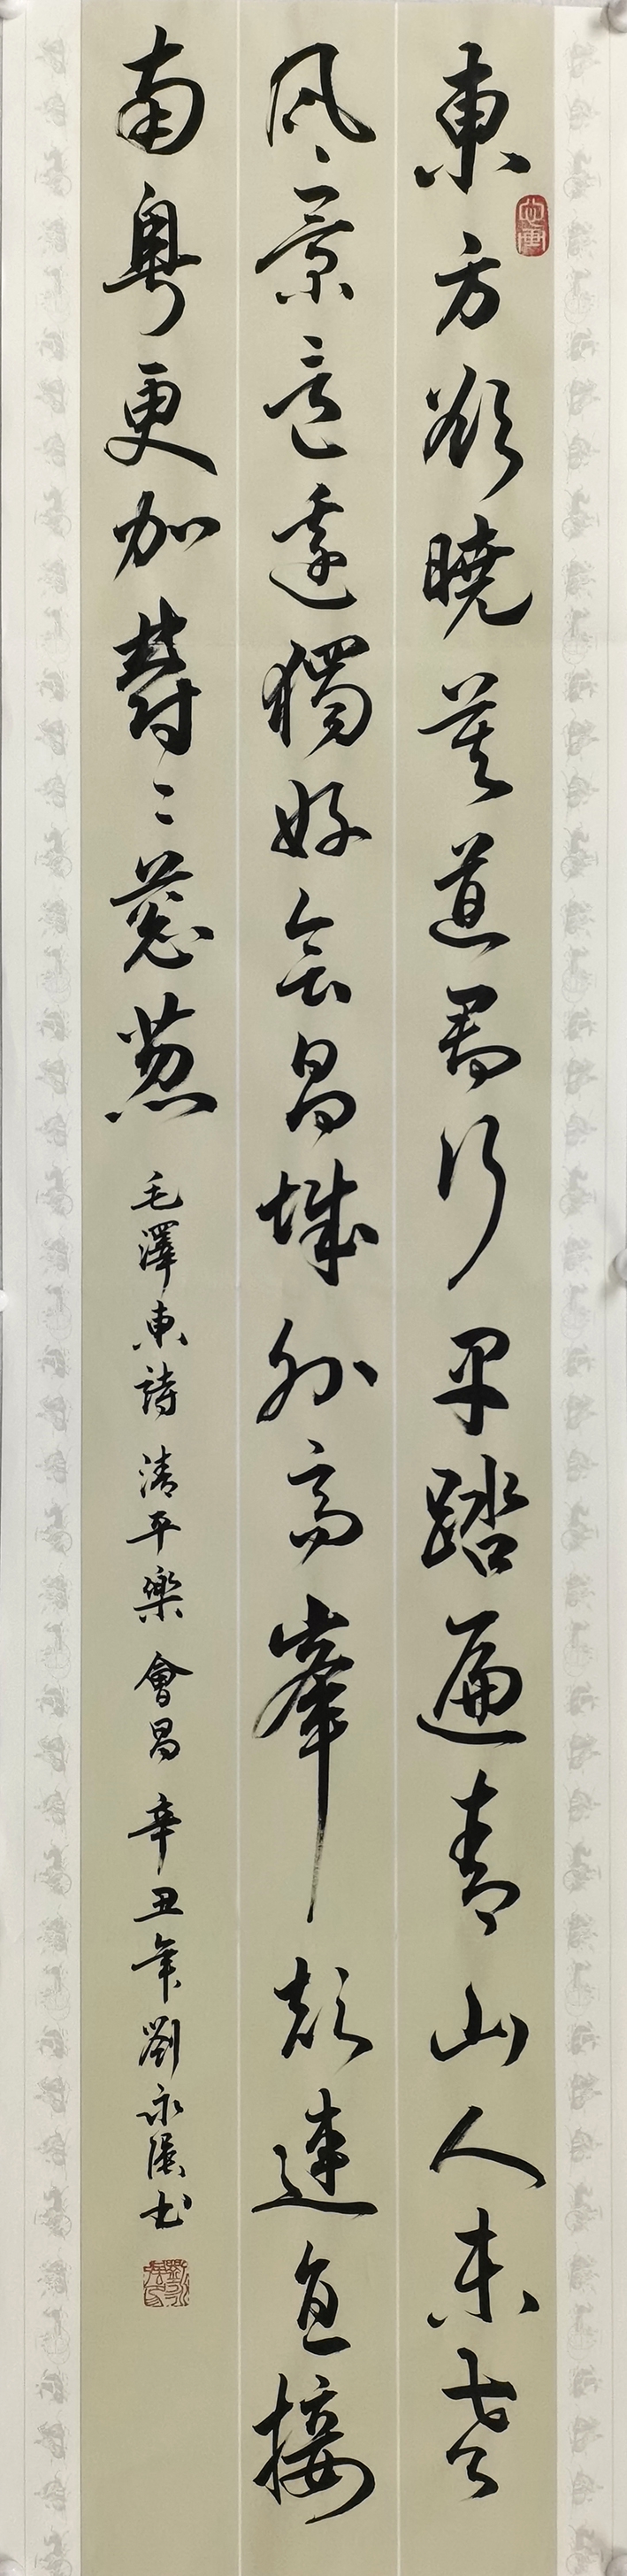 東方欲曉莫道君行早踏遍青山人未老
風景這邊獨好會昌城外高峯顛連直接
南粵更加鬱〻蔥蔥 毛澤東詩 清平樂 會昌 辛丑年劉永書